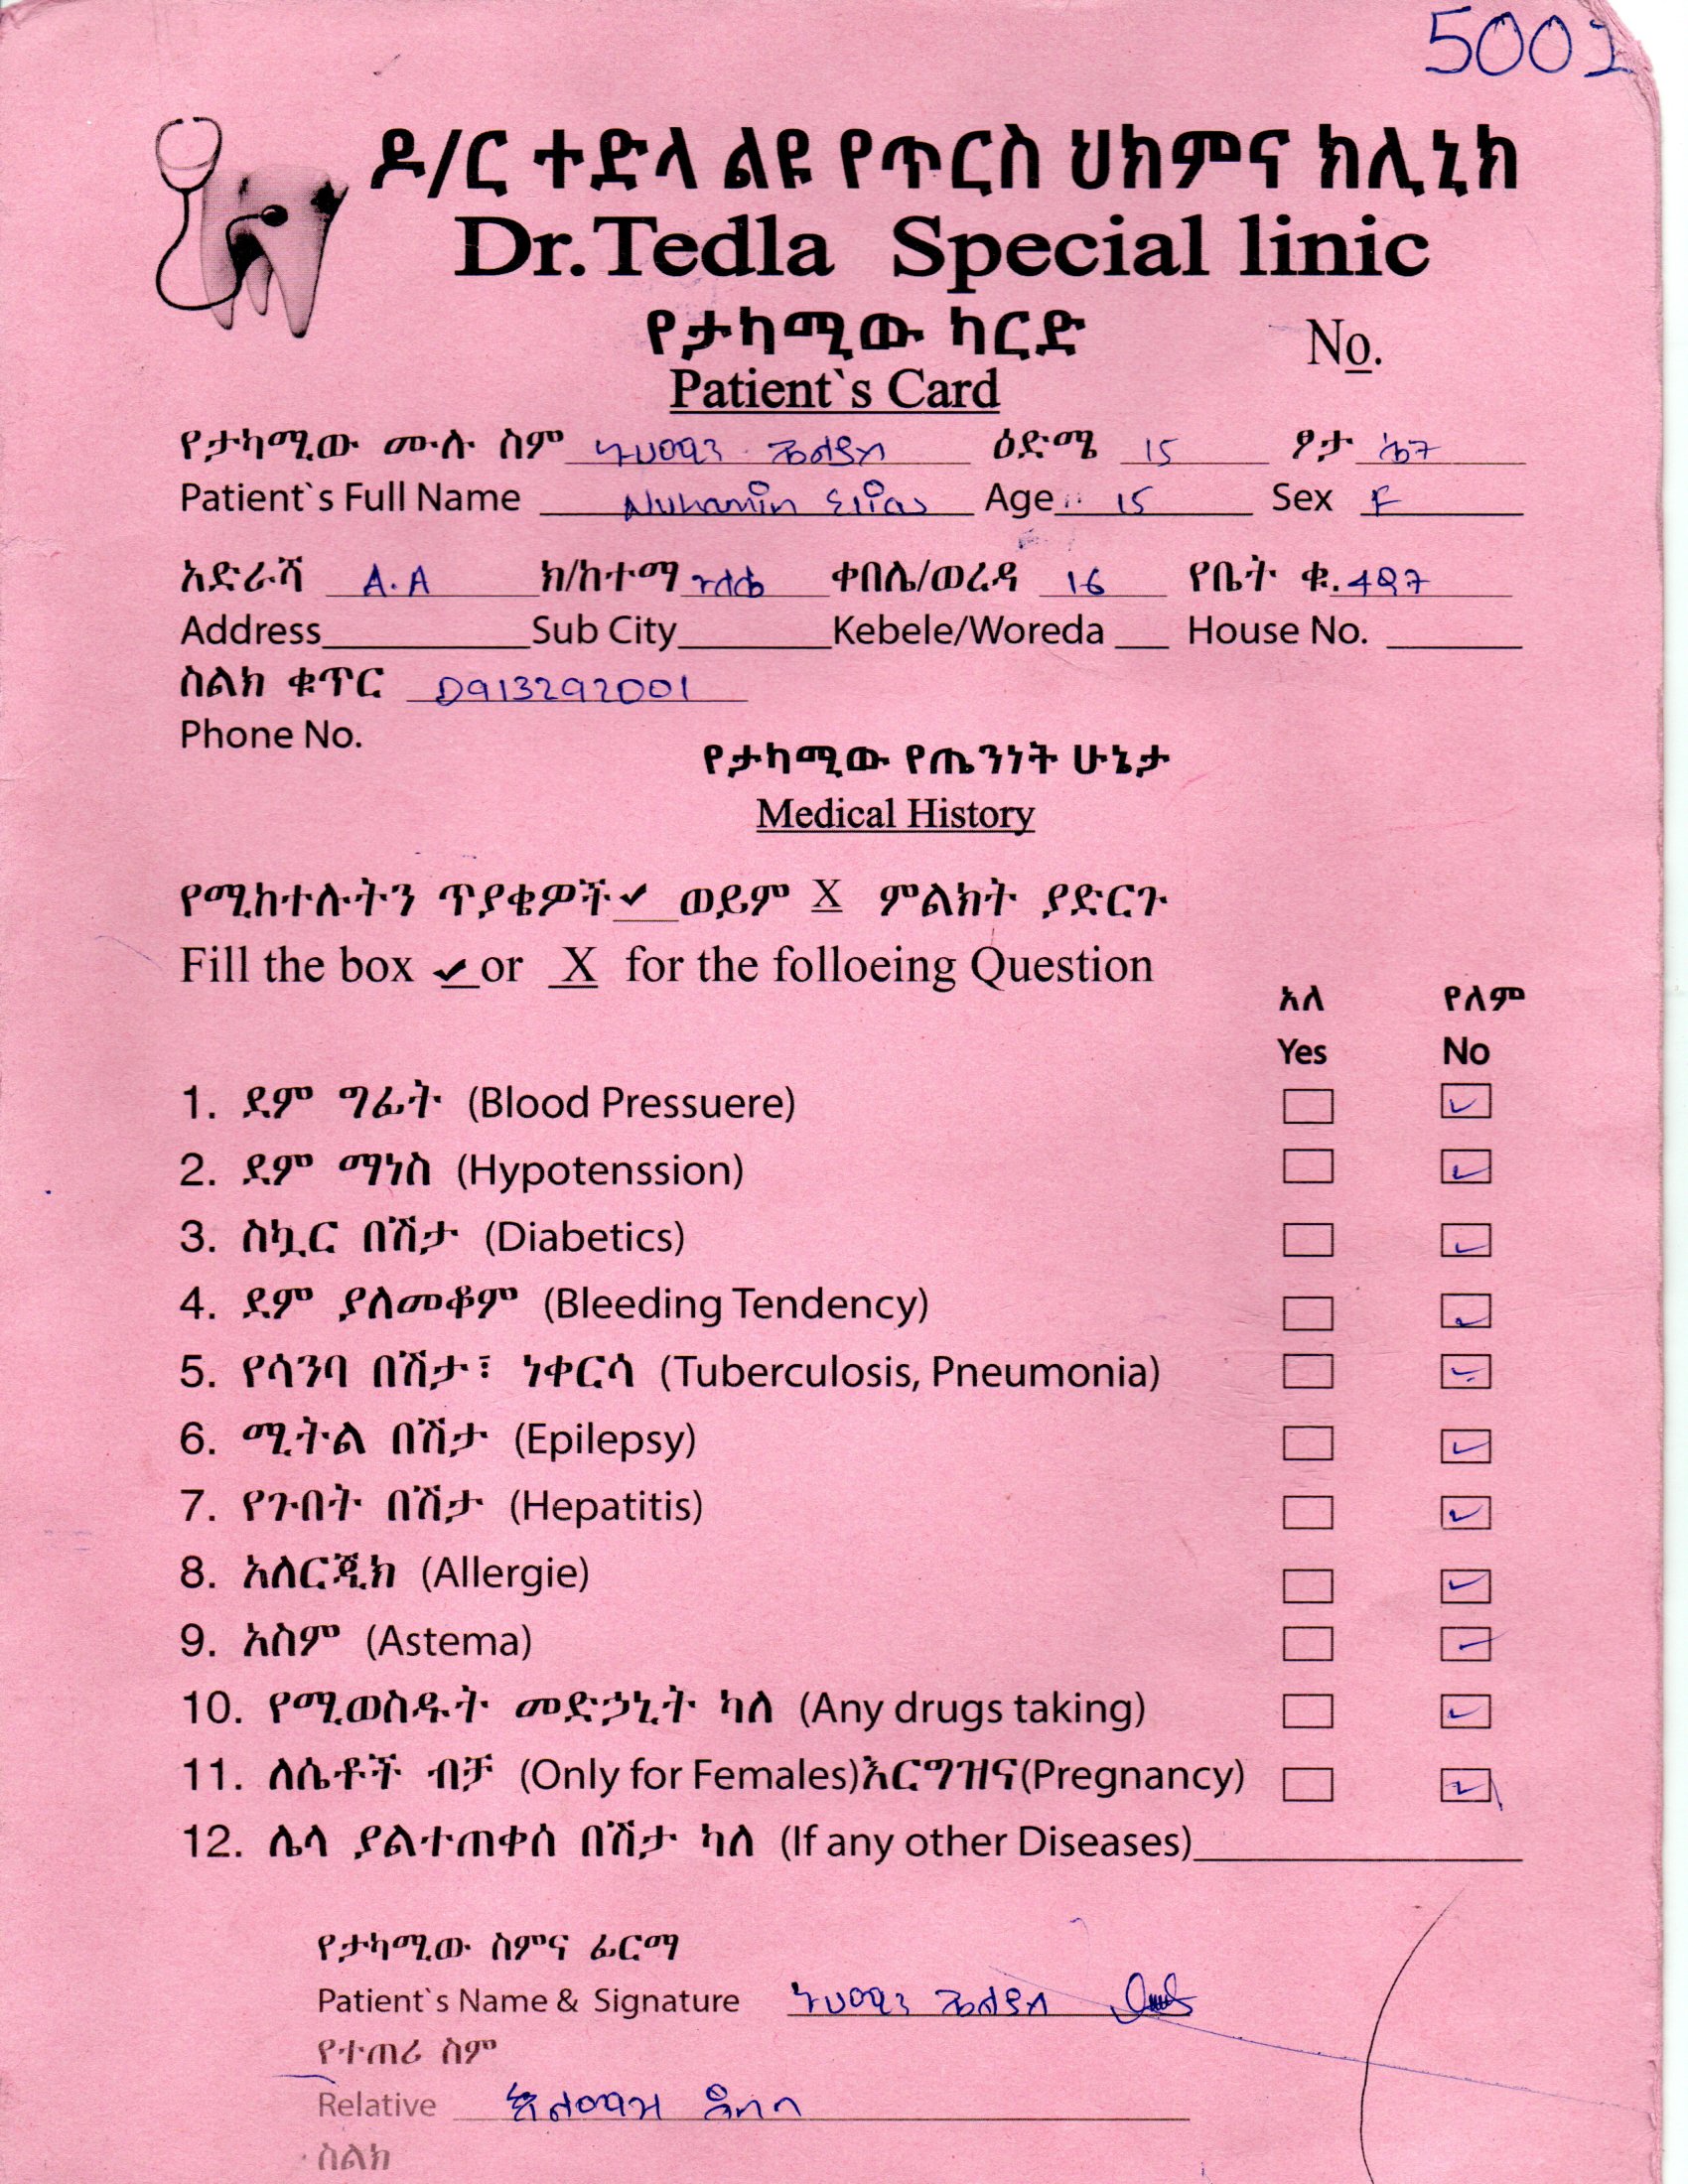 5002
ዶ/ር ተድላ ልዩ የጥርስ ህክምና ክሊኒክ
Dr.Tedla Special linic
የታካሚው ካርድ
No.
Patient`s Card
የታካሚው ሙሉ ስም ዕድሜ 15 ፆታ ሴት
Patient`s Full Name Nuhamin Elias Age 15 Sex F
አድራሻ A.A ክ/ከተማ ቀበሌ/ወረዳ 16 የቤት ቁ. 487
Address Sub City Kebele/Woreda House No.
ስልክ ቁጥር 0913292001
Phone No.
የታካሚው የጤንነት ሁኔታ
Medical History
የሚከተሉትን ጥያቄዎች ✔ ወይም X ምልክት ያድርጉ
Fill the box ✔ or X for the folloeing Question
አለ የለም
Yes No
1. ደም ግፊት (Blood Pressuere) ✓
2. ደም ማነስ (Hypotenssion) ✓
3. ስኳር በሽታ (Diabetics) ✓
4. ደም ያለመቆም (Bleeding Tendency) ✓
5. የሳንባ በሽታ፣ ነቀርሳ (Tuberculosis, Pneumonia) ✓
6. ሚትል በሽታ (Epilepsy) ✓
7. የጉበት በሽታ (Hepatitis) ✓
8. አለርጂክ (Allergie) ✓
9. አስም (Astema) ✓
10. የሚወስዱት መድኃኒት ካለ (Any drugs taking) ✓
11. ለሴቶች ብቻ (Only for Females)እርግዝና(Pregnancy) ✓
12. ሌላ ያልተጠቀሰ በሽታ ካለ (If any other Diseases)
የታካሚው ስምና ፊርማ
Patient`s Name & Signature
የተጠሪ ስም
Relative
ስልክ